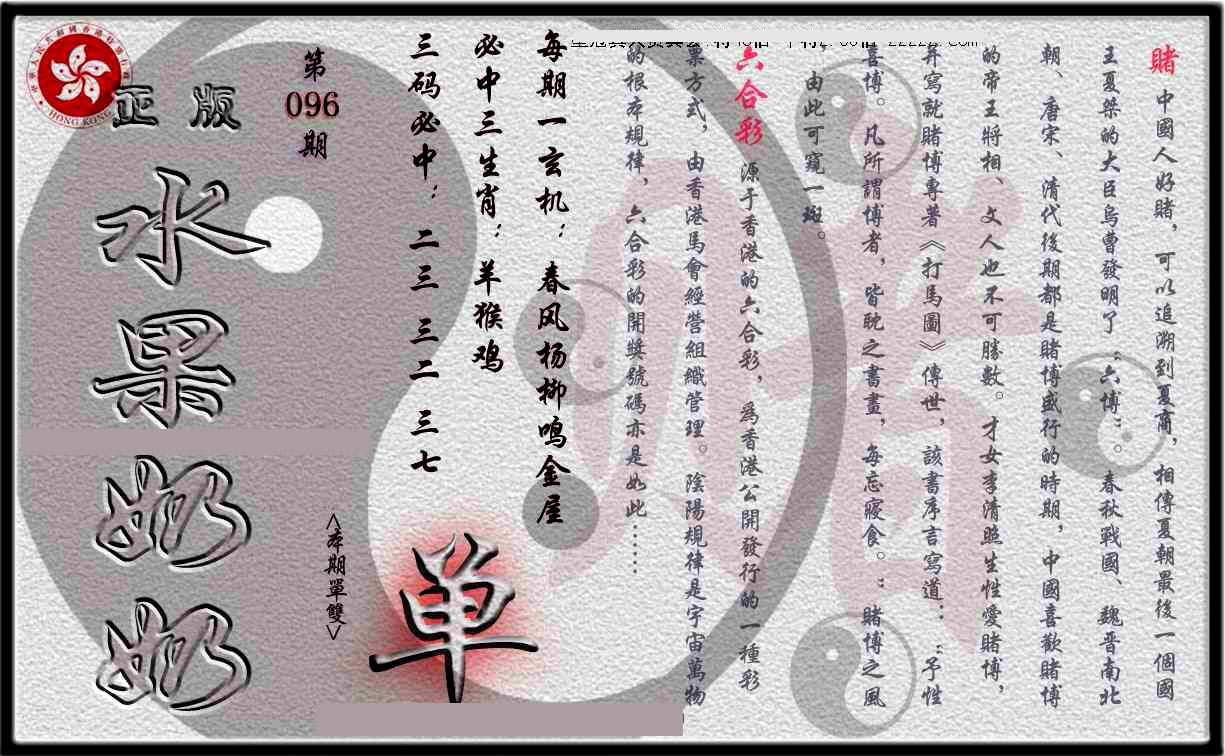 賭 中國人好賭，可以追溯到夏商，相傳夏朝最後一個國
王夏桀的大臣烏曹發明了“六博”。春秋戰國、魏晉南北
朝、唐宋、清代後期都是賭博盛行的時期，中國喜歡賭博
的帝王將相、文人也不可勝數。才女李清照生性愛賭博，
并寫就賭博專著《打馬圖》傳世，該書序言寫道：“予性
喜博。凡所謂博者，皆耽之書畫，每忘寢食。”賭博之風
由此可窺一斑。
六合彩 源于香港的六合彩，為香港公開發行的一種彩
票方式，由香港馬會經營組織管理。陰陽規律是宇宙萬物
的根本規律，六合彩的開獎號碼亦是如此……
每期一玄机：春风杨柳鸣金屋
必中三生肖：羊猴鸡
三码必中：二三 三二 三七
第
096
期
<本期單雙>
单
正版
水果奶奶
HONG KONG